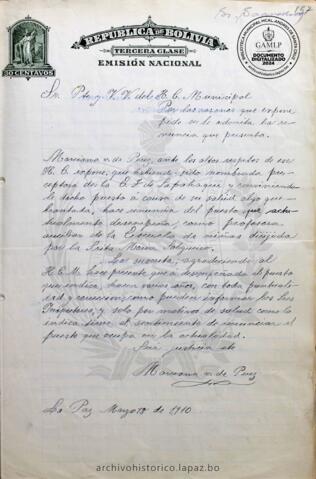 157
REPUBLICA DE BOLIVIA
TERCERA CLASE
EMISIÓN NACIONAL
50 CENTAVOS
GAMLP
DOCUMENTO
DIGITALIZADO
2024
Sr. Pte y V. V. del H. C. Municipal
Por las razones que expone
pide se le admita la re-
nuncia que presenta.
Mariana v. de Paez, ante los altos respetos de ese
H. C. expone: que habiendo sido nombrada pre-
ceptora de la E. F. de y
dicho puesto a causa de su salud algo que-
brantada, hace renuncia del puesto que actu-
almente desempeña, como profesora
auxiliar de la Escuela de niñas dirijida
por la Srta Maria
La suscrita, agradeciendo al
H. C. M. hace presente que a desempeñado el puesto
que indica, hacen varios años, con toda puntuali-
dad y como pueden informar los Srs
Inspectores, y solo por motivos de salud como lo
indica tiene el sentimiento de renunciar el
puesto que ocupa en la actualidad.
Será justicia etc
Mariana v. de Paez
La Paz Marzo 18 de 1910.
archivohistorico.lapaz.bo